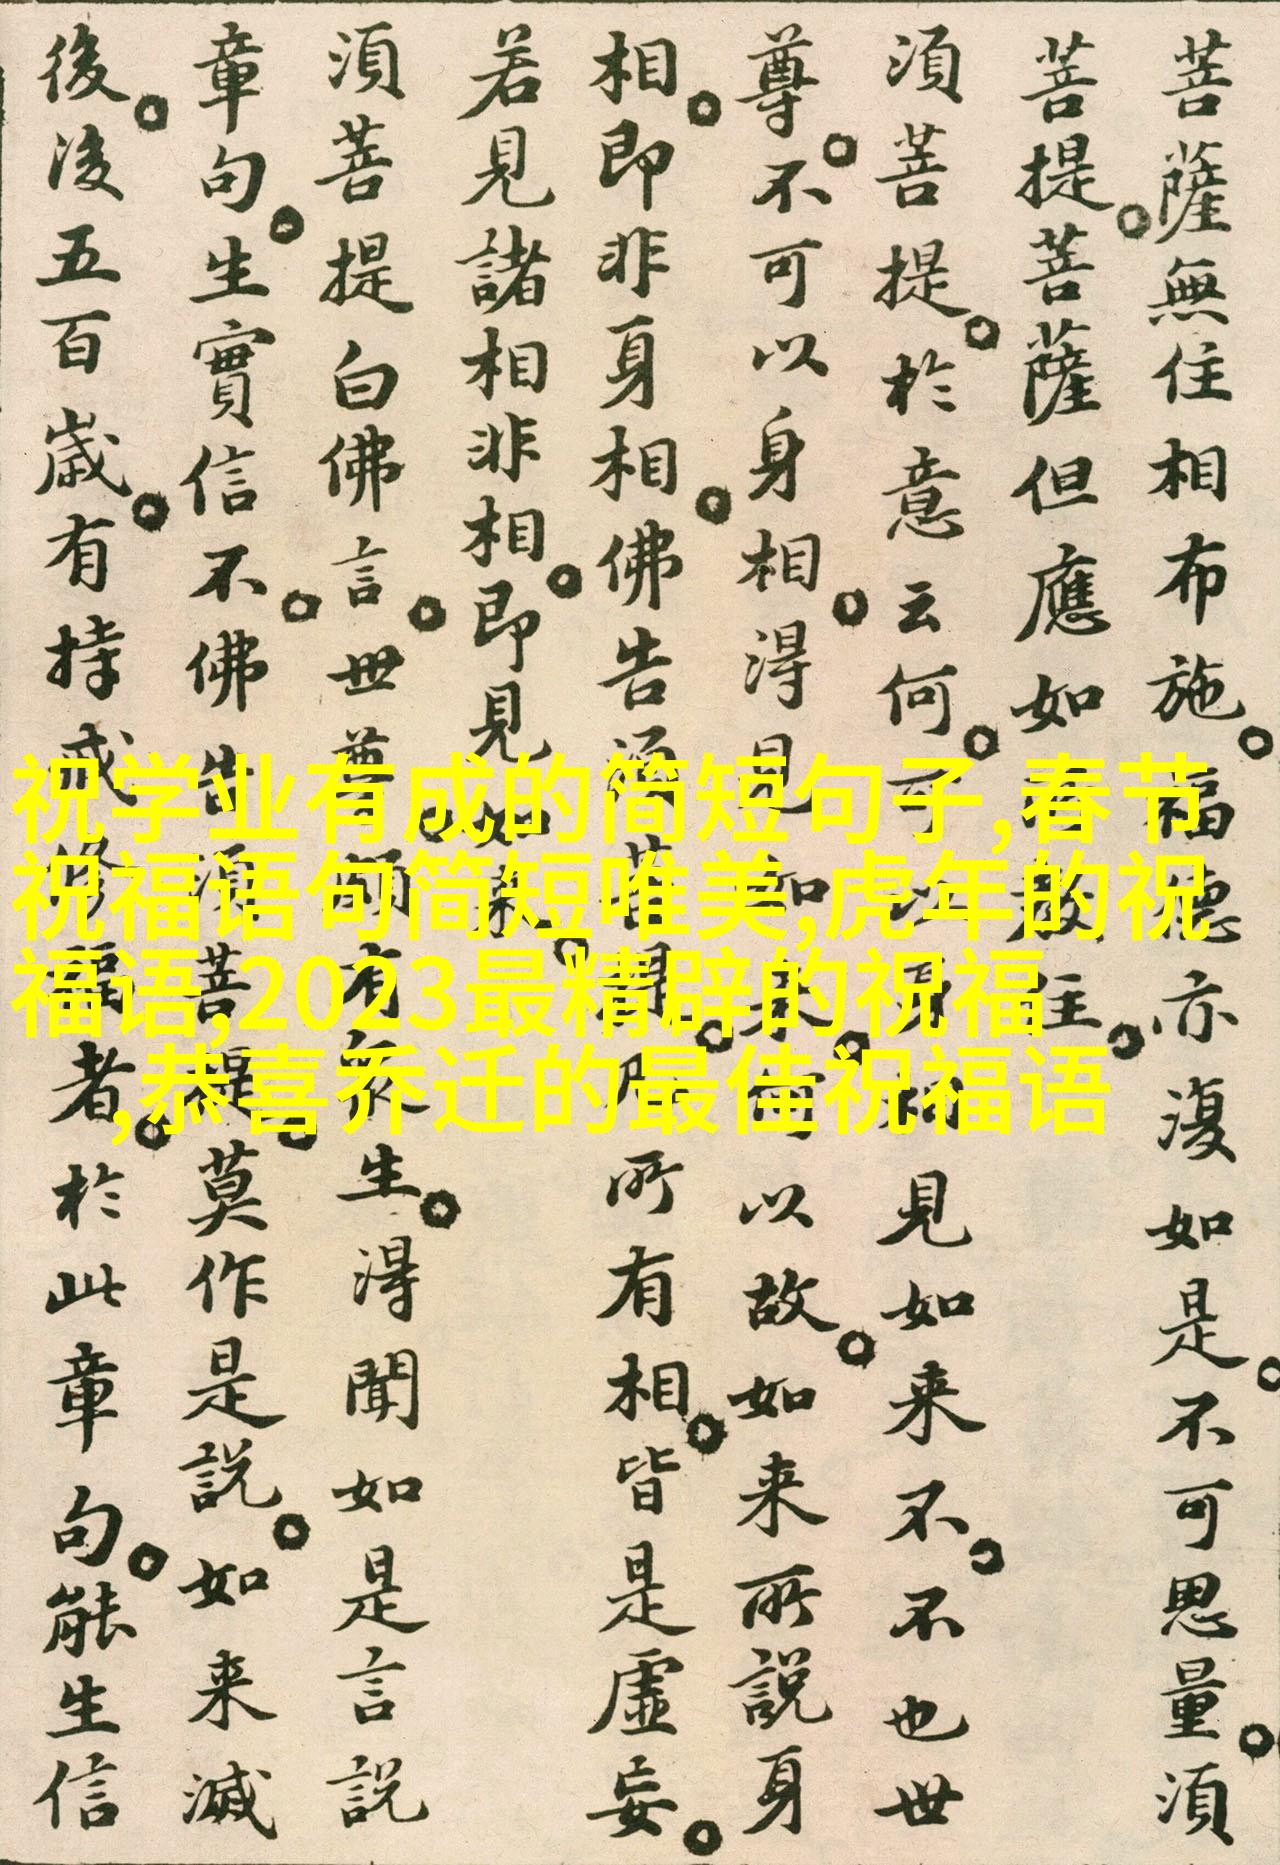 菩薩無住相布施福德亦復如是不可思量須
菩提菩薩但應如所教住
須菩提於意云何可以身相見如来不不也世
尊不可以身相得見如来何以故如来所說身
相即非身相佛告須菩提凡所有相皆是虛妄
若見諸相非相即見如来
須菩提白佛言世尊頗有衆生得聞如是言說
章句生實信不佛告須菩提莫作是說如来滅
後後五百歲有持戒修福者於此章句能生信
祝学业有成的简短句子,春节
祝福语句简短唯美,虎年的祝
福语,2023最精辟的祝福
,恭喜乔迁的最佳祝福语